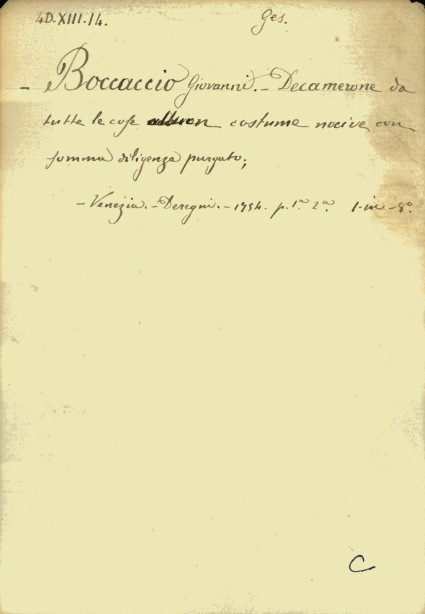 4D.XIII.14.
Ges.
- Boccaccio Giovanni. - Decamerone da
tutte le cose al buon costume nocive con
somma diligenza purgato;
- Venezia. - Deregni. - 1754. p. 1.ª 2.ª 1-in-8.º
C